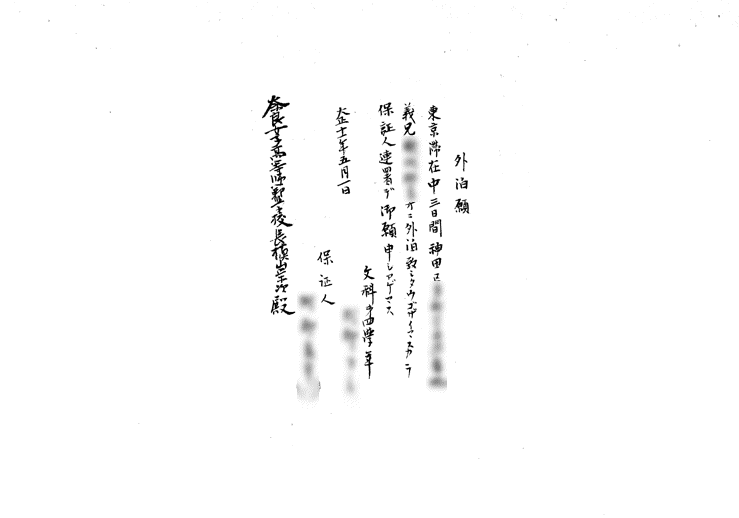 外泊願
東京滞在中三日間神田区
義兄 方ニ外泊致シタウゴザイマスカラ
保証人連署デ御願申シアゲマス
文科第四学年
大正十年五月一日
保証人
奈良女子高等師範学校長槇山栄次殿